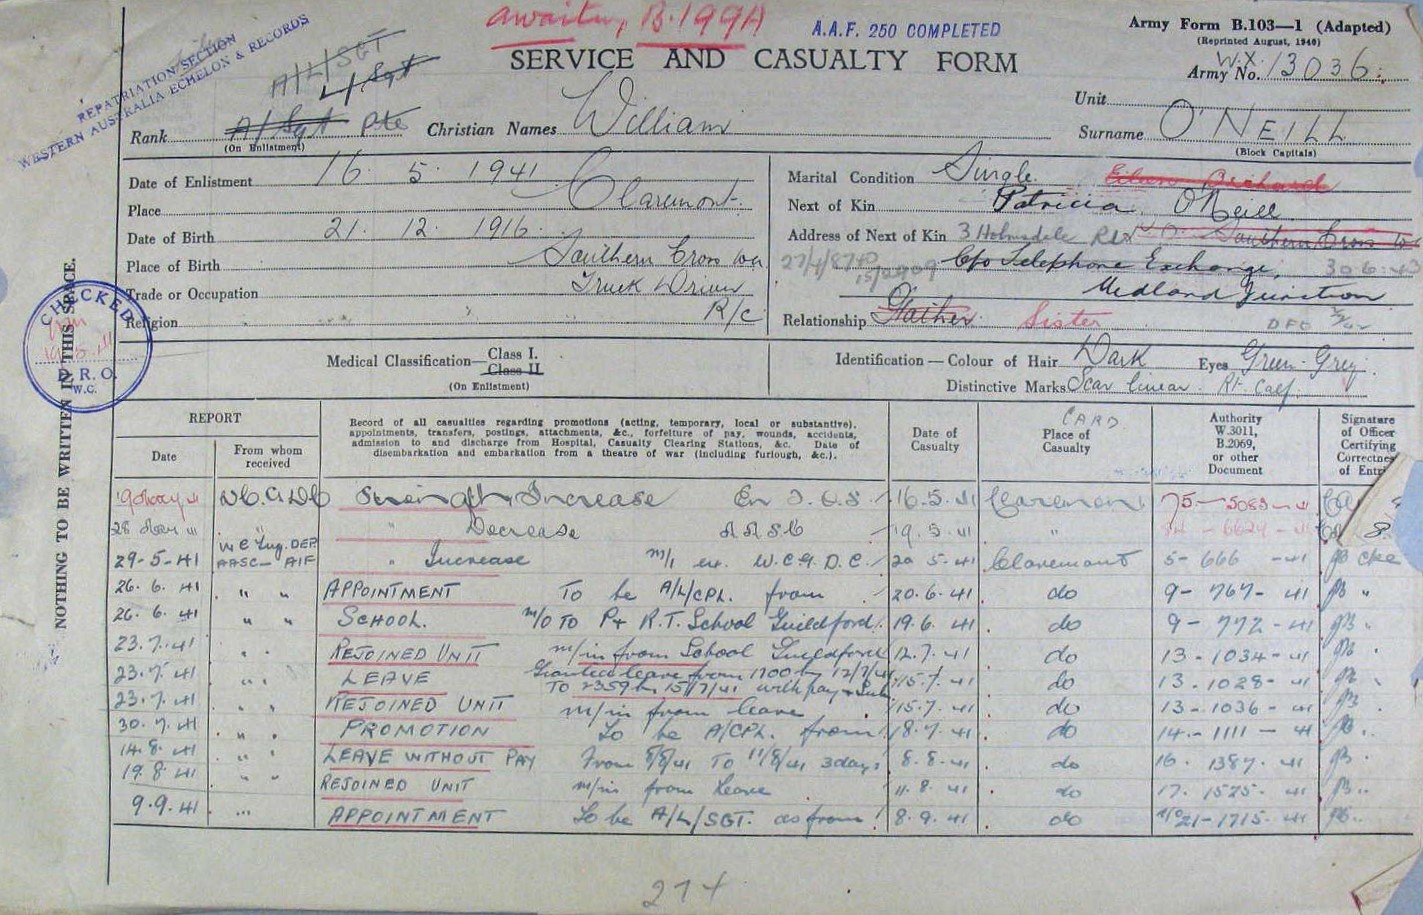 awaiting B.199A
A.A.F. 250 COMPLETED
Army Form B.103—1 (Adapted)
(Reprinted August, 1940)
REPATRIATION SECTION
WESTERN AUSTRALIA ECHELON & RECORDS
A/L/SGT
L/Sgt
SERVICE AND CASUALTY FORM
W.X.
Army No. 13036
Unit
Rank A/Sgt Pte Christian Names William
Surname O'NEILL
(On Enlistment)
(Block Capitals)
Date of Enlistment 16. 5. 1941
Place Claremont.
Date of Birth 21. 12. 1916.
Place of Birth Southern Cross WA
Trade or Occupation Truck Driver
Religion R/C
Marital Condition Single. Eileen Orchard
Next of Kin Patricia O'Neill
Address of Next of Kin 3 Holmsdale Rd Southern Cross WA
C/o Telephone Exchange, 30.6.43
Midland Junction
Relationship Father Sister
CHECKED
D.R.O.
W.C.
NOTHING TO BE WRITTEN IN THIS SPACE.
Medical Classification— Class I.
Class II
(On Enlistment)
Identification — Colour of Hair Dark Eyes Green-Grey.
Distinctive Marks Scar linear. Rt. Calf.
REPORT
Date
From whom received
Record of all casualties regarding promotions (acting, temporary, local or substantive), appointments, transfers, postings, attachments, &c., forfeiture of pay, wounds, accidents, admission to and discharge from Hospital, Casualty Clearing Stations, &c. Date of disembarkation and embarkation from a theatre of war (including furlough, &c.).
Date of Casualty
CARD
Place of Casualty
Authority W.3011, B.2069, or other Document
Signature of Officer Certifying Correctness of Entri
19 May 41 W.C.G.D.C Strength Increase 16.5.41 Claremont 75-5083-41
28 May 41 " " Decrease AASC 19.5.41 "
29-5-41 AASC- AIF " Increase m/i ex. W.C.G.D.C. 20 5.41 Claremont 5-666-41
26.6.41 " " APPOINTMENT To be A/L/CPL. from 20.6.41 do 9-767-41
26.6.41 " " SCHOOL. m/o TO P+ R.T. School Guildford. 19.6.41 do 9-772-41
23.7.41 " " REJOINED UNIT m/in from School Guildford 12.7.41 do 13-1034-41
23.7.41 " " LEAVE Granted leave from 1700 hr 12/7/41 TO 2359 hr 15/7/41 with pay + Sub 15.7.41 do 13-1028-41
23.7.41 " " REJOINED UNIT m/in from leave 15.7.41 do 13-1036-41
30.7.41 " " PROMOTION To be A/CPL. from 18.7.41 do 14-1111-41
14.8.41 " " LEAVE WITHOUT PAY From 8/8/41 TO 11/8/41 3days 8.8.41 do 16.1387.41
19.8.41 " " REJOINED UNIT m/in from Leave 11.8.41 do 17.1525.41
9.9.41 " APPOINTMENT To be A/L/SGT. as from 8.9.41 do 21-1715-41
274